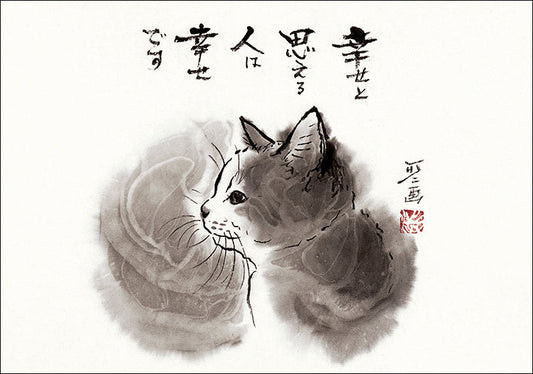 幸せと
思える
人は
幸せ
です